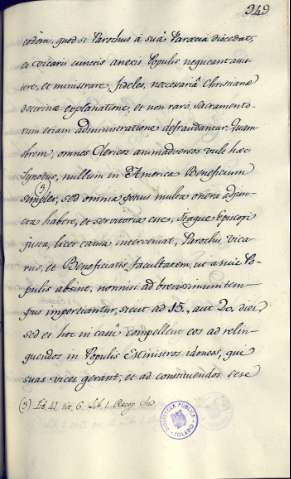 349
eodem, quod si Parochus á suâ Parœcia discedat,
et Vicarii cunctis anexis Populis nequeant
et ministrare, fideles, necesariâ Christianæ
doctrinæ explanatione, et non raró Sacramento-
rum etiam administratione defraudantur. Quam
obrem, omnes Clericos animadversos vult hæc
Synodus, nullum in America Beneficium
(3)
simplex, sed omnia potius multa onera adjunc-
ta habere, et servitoria esse. Itaque Episcopi
justa, licet causa interveniat, Parochis, Vica-
riis, et Beneficiatis, facultatem, ut a suis Po-
pulis absint, nonnisi ad brevissimum tem-
pus impertiantur, sicut ad 15, aut 20, dies
sed et hoc in casu compellent eos ad relin-
quendos in Populis Ministros idoneos, qui
suas vices gerant, et ad constituendos sese
(3) tit. 6. Lib. 1. Recop.
BIBLIOTECA PUBLICA
TOLEDO